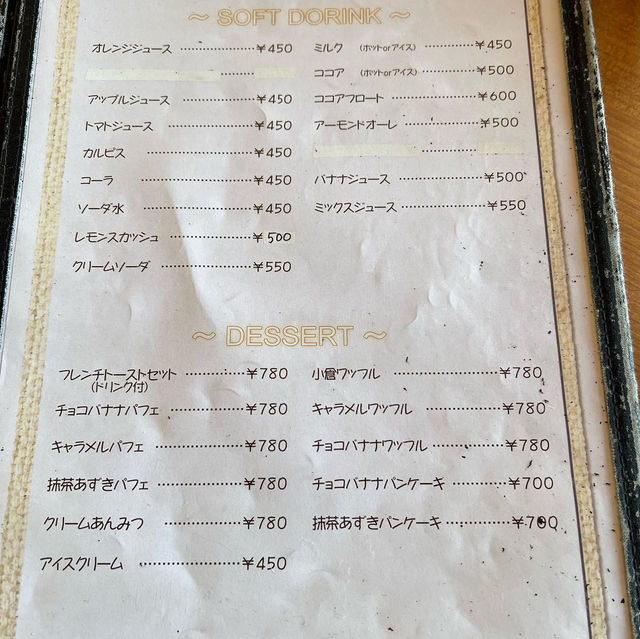 ～ SOFT DORINK ～
オレンジジュース ……………… ¥450
アップルジュース ……………… ¥450
トマトジュース ……………… ¥450
カルピス ……………… ¥450
コーラ ……………… ¥450
ソーダ水 ……………… ¥450
レモンスカッシュ ……………… ¥500
クリームソーダ ……………… ¥550
ミルク (ホットorアイス) ……………… ¥450
ココア (ホットorアイス) ……………… ¥500
ココアフロート ……………… ¥600
アーモンドオーレ ……………… ¥500
バナナジュース ……………… ¥500
ミックスジュース ……………… ¥550
～ DESSERT ～
フレンチトーストセット ……………… ¥780
(ドリンク付)
チョコバナナパフェ ……………… ¥780
キャラメルパフェ ……………… ¥780
抹茶あずきパフェ ……………… ¥780
クリームあんみつ ……………… ¥780
アイスクリーム ……………… ¥450
小倉ワッフル ……………… ¥780
キャラメルワッフル ……………… ¥780
チョコバナナワッフル ……………… ¥780
チョコバナナパンケーキ ……………… ¥700
抹茶あずきパンケーキ ……………… ¥700